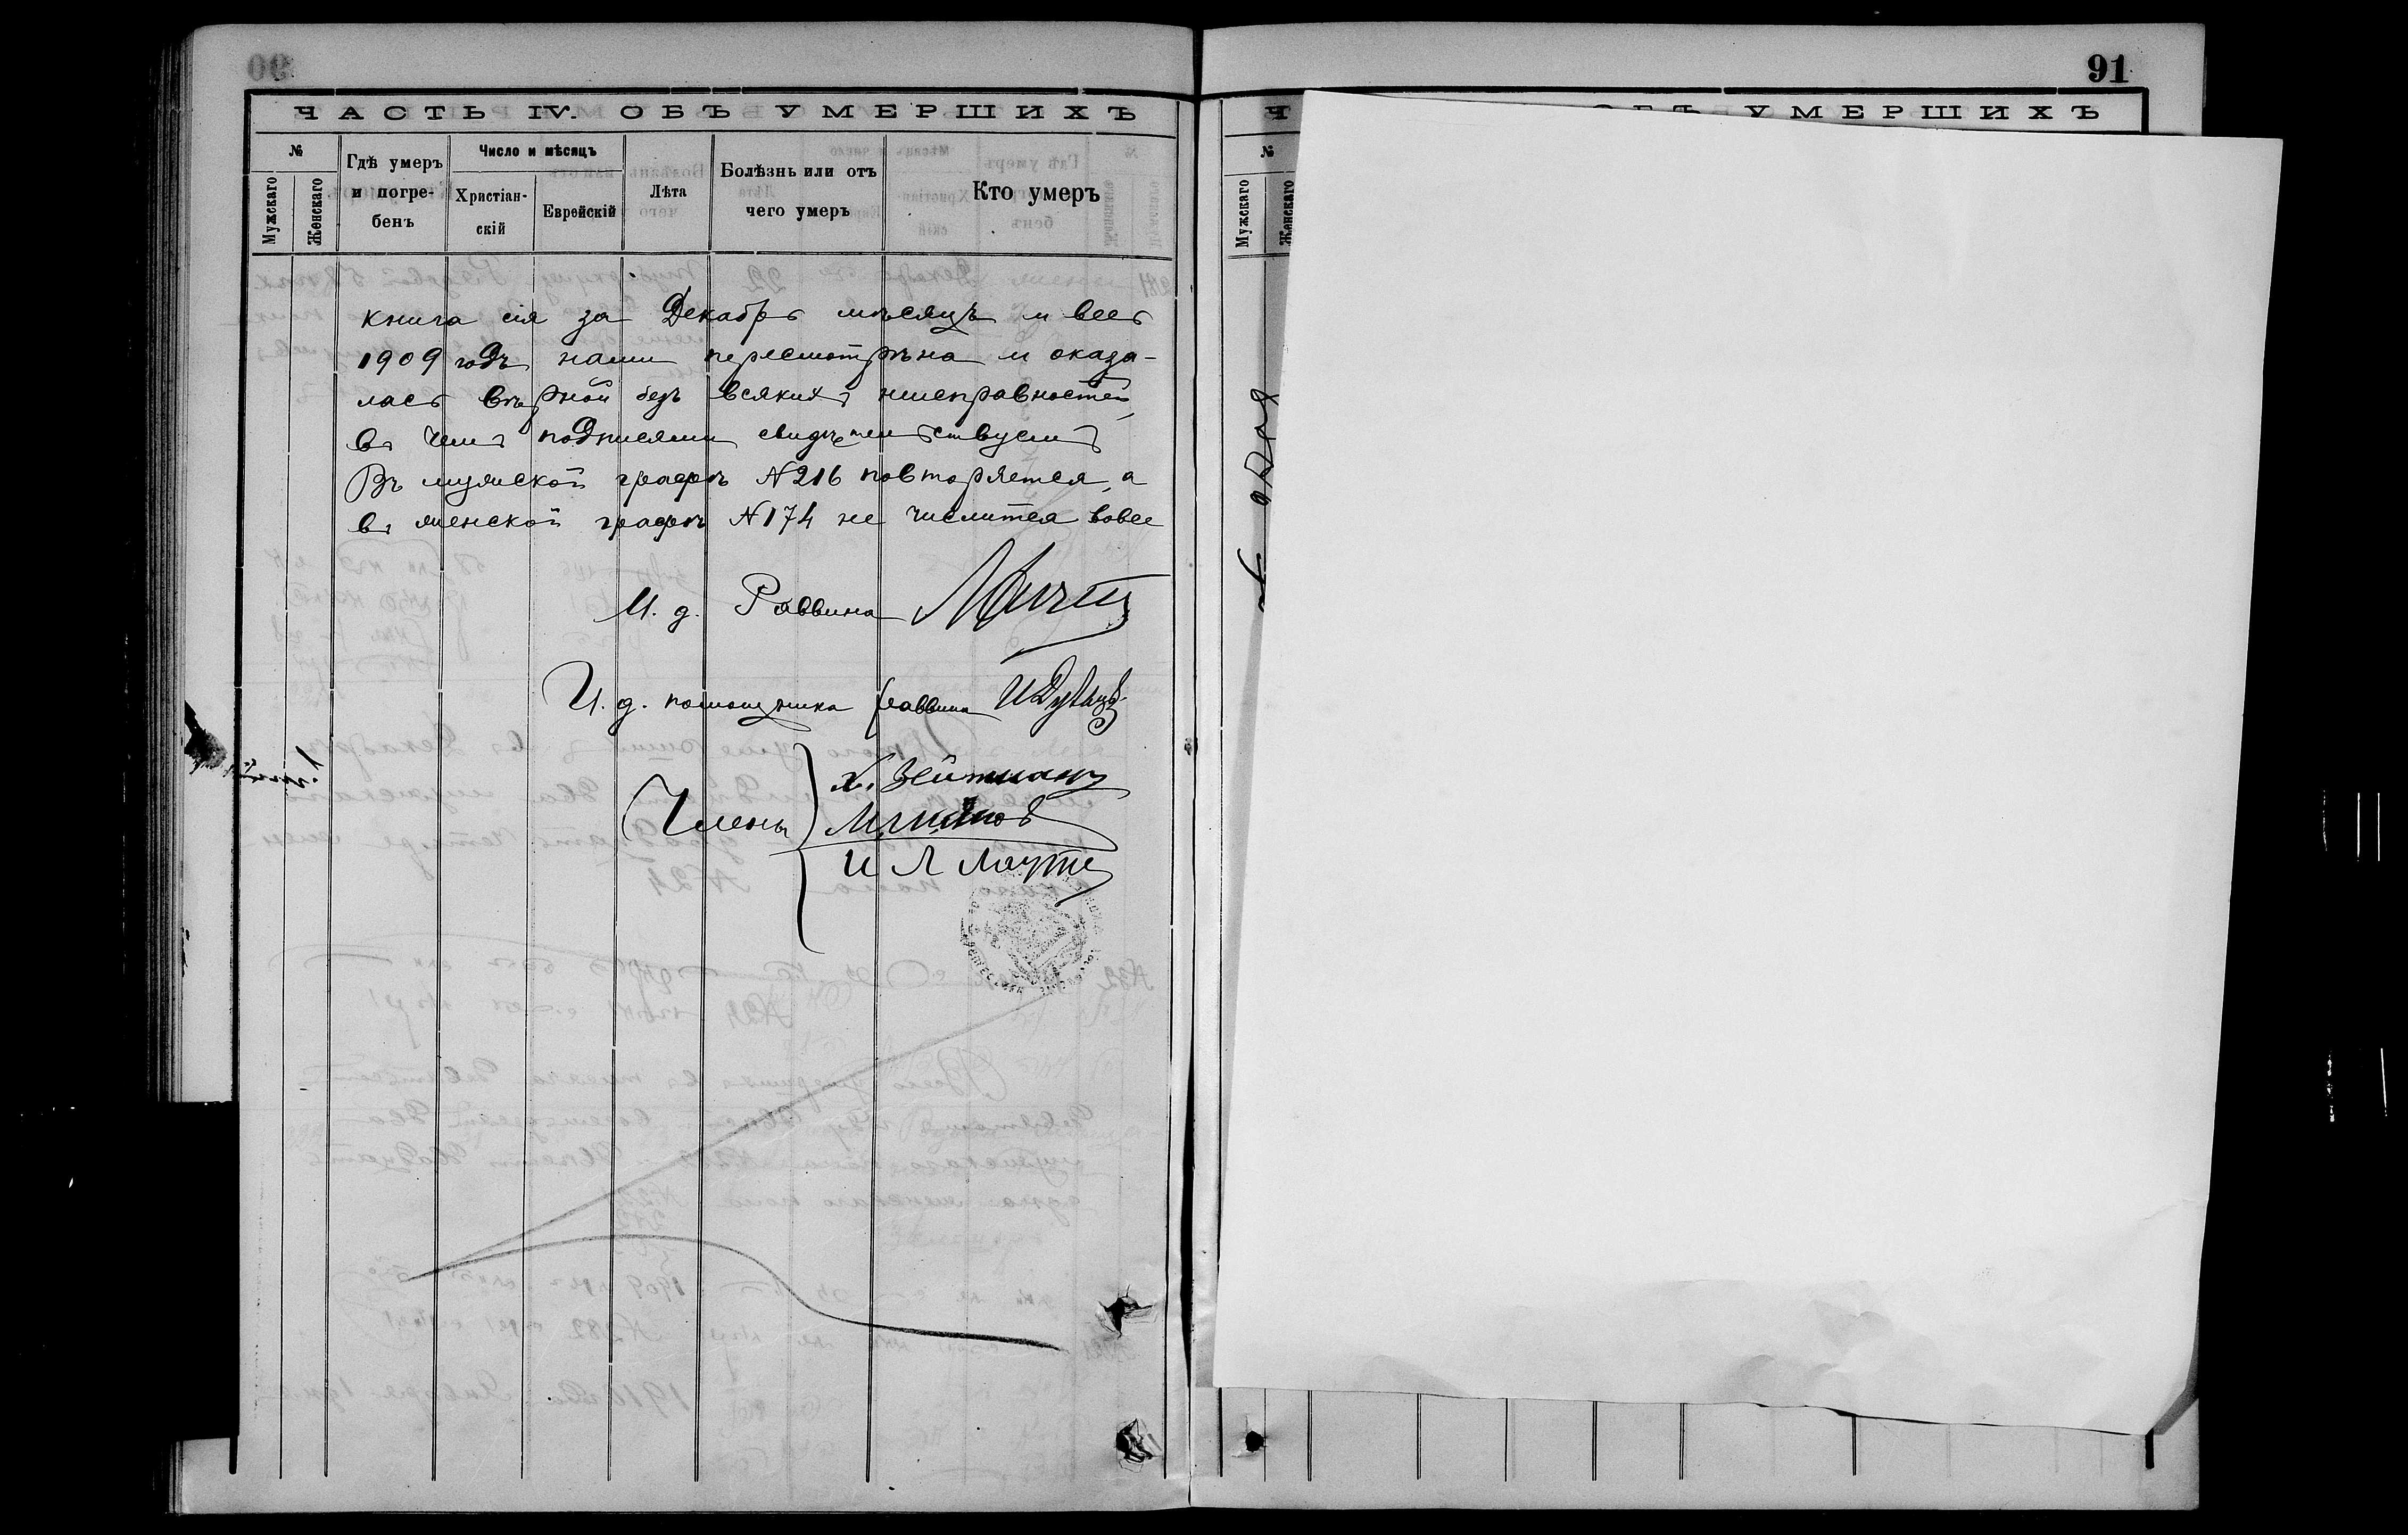 91
ЧАСТЬ IV. ОБЪ УМЕРШИХЪ
№
Мужскаго
Женскаго
Гдѣ умеръ и погре-бенъ
Число и мѣсяцъ
Христіан-скій
Еврейскій
Лѣта
Болѣзнь или отъ чего умеръ
Кто умеръ
книга сія за Декабрь мѣсяцъ и весь
1909 годъ нами пересмотрѣна и оказа-
лась вѣрной безъ всякихъ неисправностей,
въ чемъ подписями свидѣтельствуемъ
Въ мужской графѣ №216 повторяется, а
въ женской графѣ №174 не числится вовсе
И. д. Раввина
И. д. помощника раввина
Члены
Х. Зейтман
ОБЪ УМЕРШИХЪ
№
Мужскаго
Женскаго